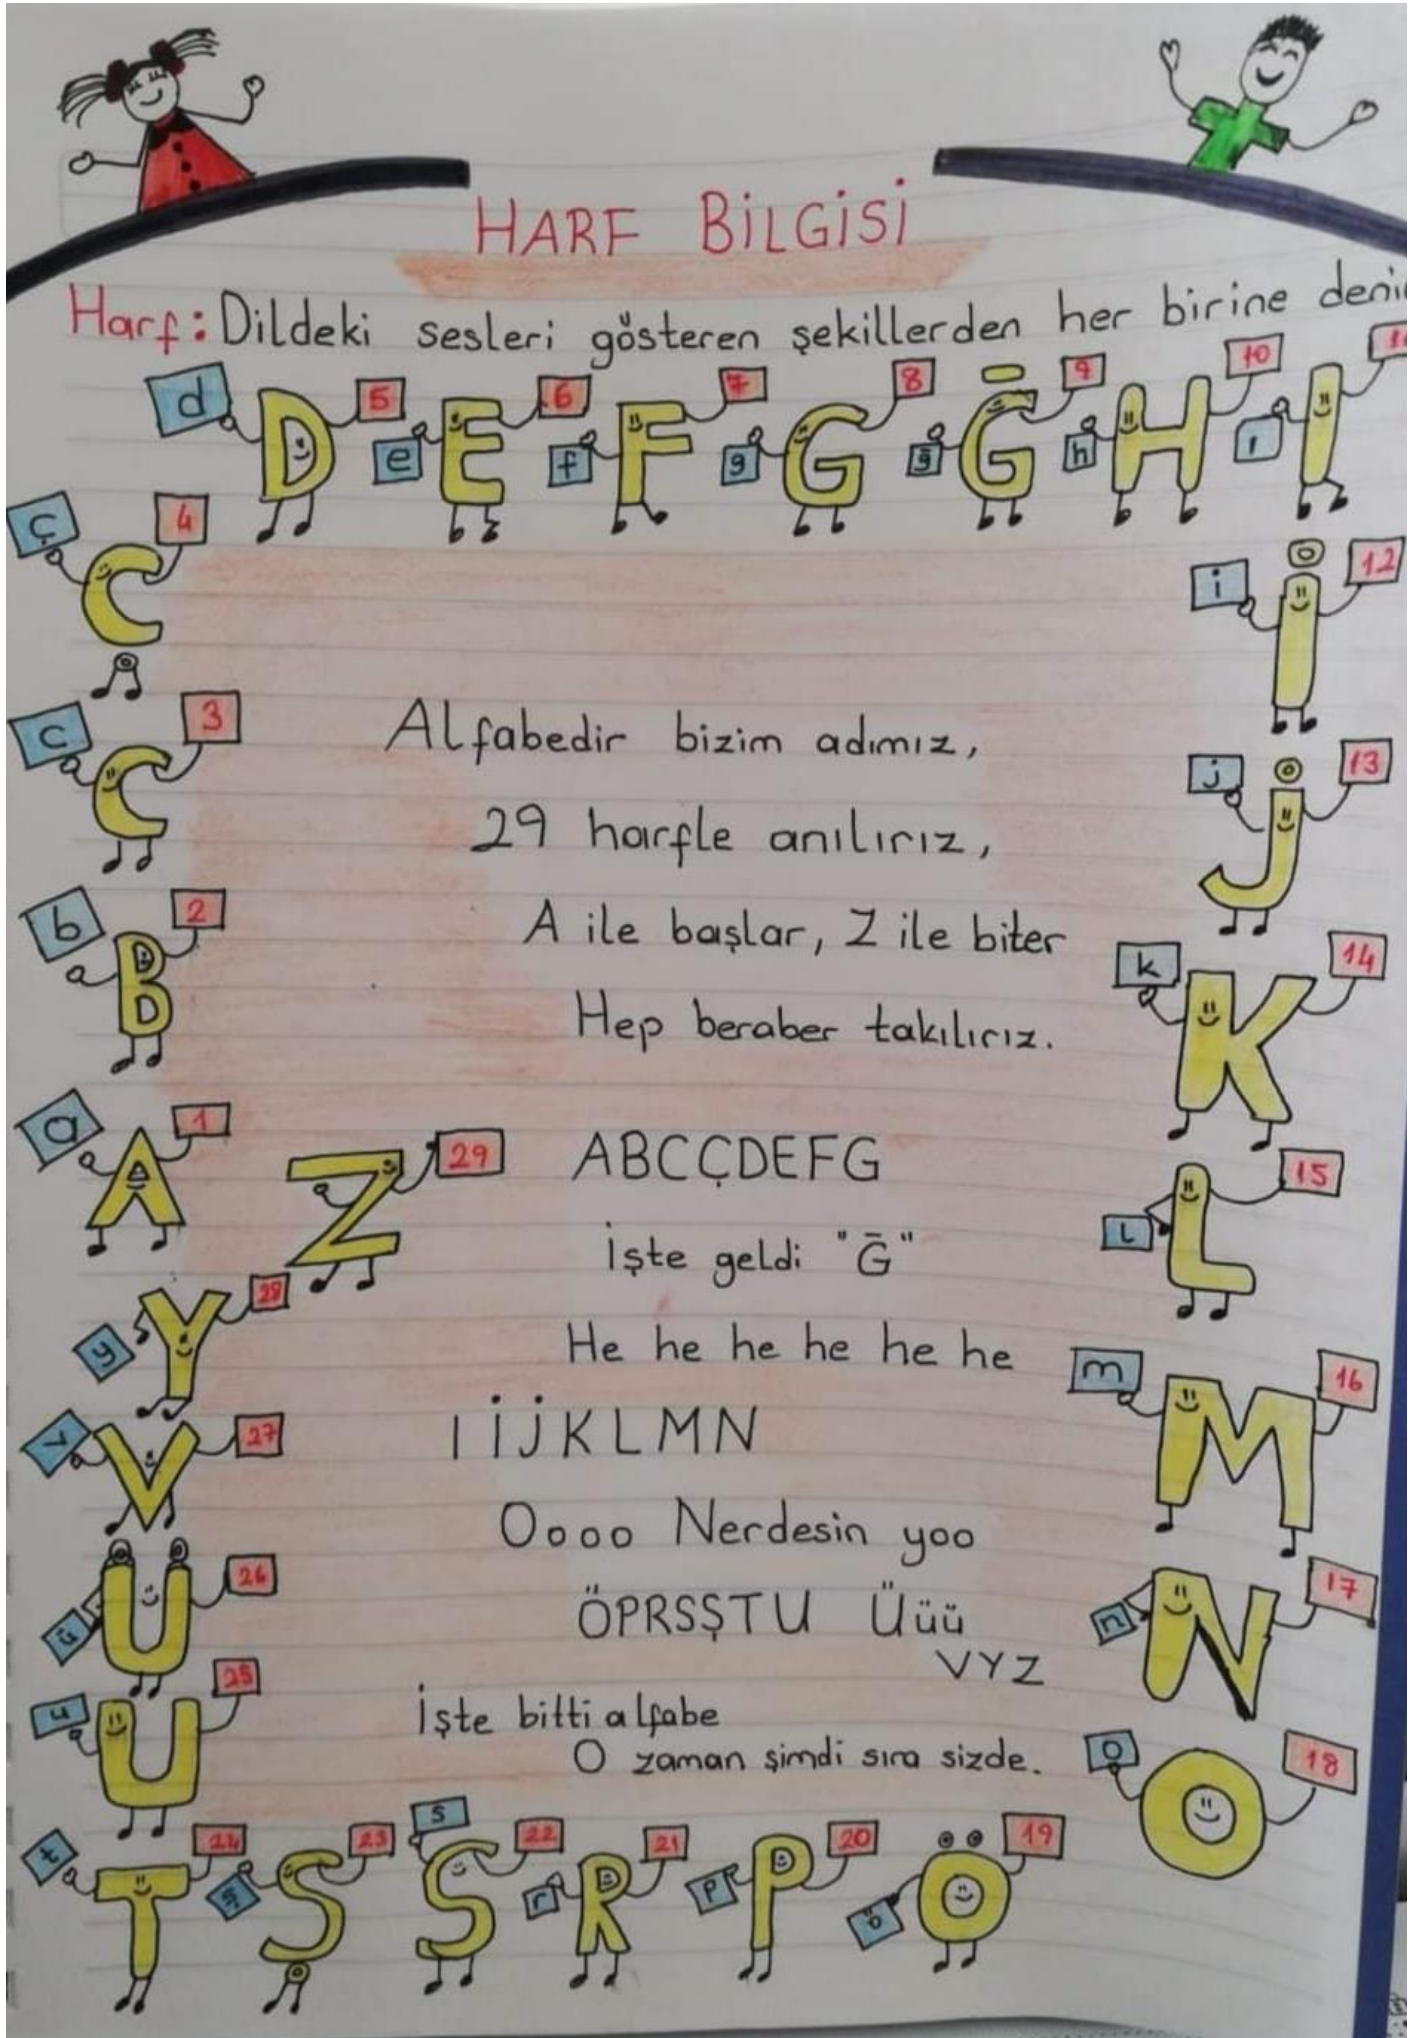 HARF BİLGİSİ
Harf: Dildeki sesleri gösteren şekillerden her birine
d D 5 e E 6 f F 7 g G 8 ğ Ğ 9 h H 10 ı I
ç Ç 4
i İ 12
c C 3
j J 13
b B 2
k K 14
a A 1
Z 29
l L 15
y Y 28
m M 16
v V 27
ü Ü 26
n N 17
u U 25
o O 18
t T 24 ş Ş 23 s S 22 r R 21 p P 20 ö Ö 19
Alfabedir bizim adımız,
29 harfle anılırız,
A ile başlar, Z ile biter
Hep beraber takılırız.
ABCÇDEFG
İşte geldi "Ğ"
He he he he he he
I İ J K L M N
Oooo Nerdesin yoo
ÖPRSŞTU Üüü
VYZ
İşte bitti alfabe
O zaman şimdi sıra sizde.